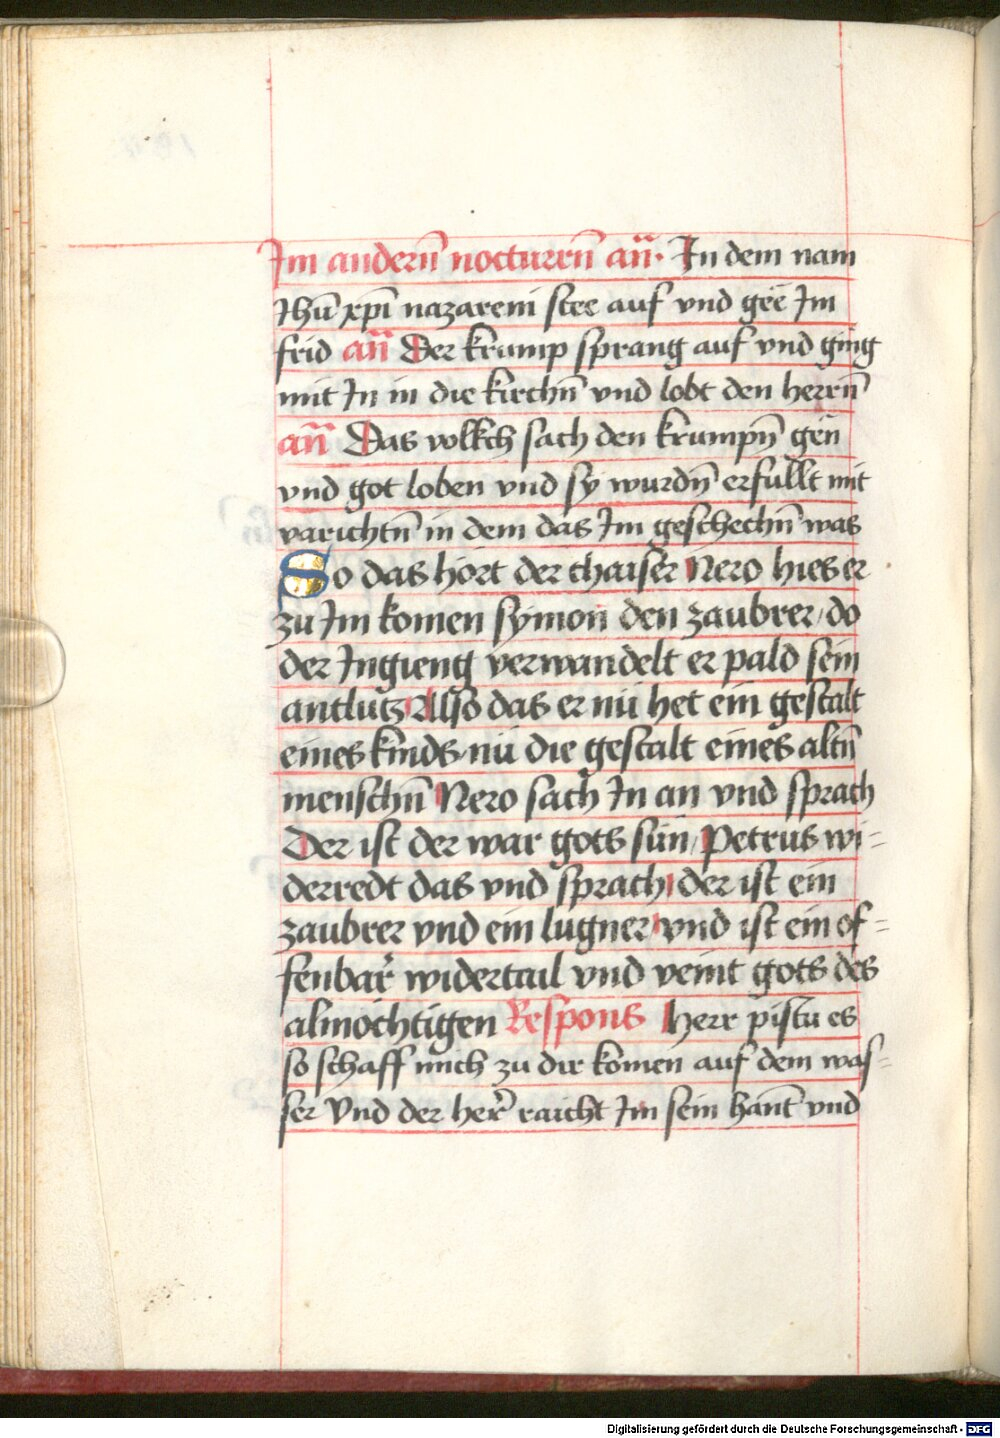 Im anderñ nocturrñ añ· In dem nam
Ihũ xpi nazareni stee auf vnd gee Im
frid añ Der krump sprang auf vnd ging
mit In in die kirchñ vnd lobt den herrñ
añ Das volkch sach den krumpñ gen
vnd got loben vnd sy wurdñ erfullt mit
varichtñ in dem das Im geschechñ was
So das hort der chaiser Nero hies er
zu Im komen symon den zaubrer / do
der Ingieng verwandelt er pald sein
antlutz Also das er nu het ein gestalt
eines kinds / nu die gestalt eines altñ
menschñ Nero sach In an vnd sprach
Der ist der war gots sun / Petrus wi=
derredt das vnd sprach / der ist ein
zaubrer vnd ein lugner vnd ist ein of=
fenbar̃ widertail vnd veint gots des
almöchtigen Respons Herr pistu es
so schaff mich zu dir komen auf dem was=
ser Vnd der her̃ raicht Im sein hant vnd
Digitalisierung gefördert durch die Deutsche Forschungsgemeinschaft - DFG